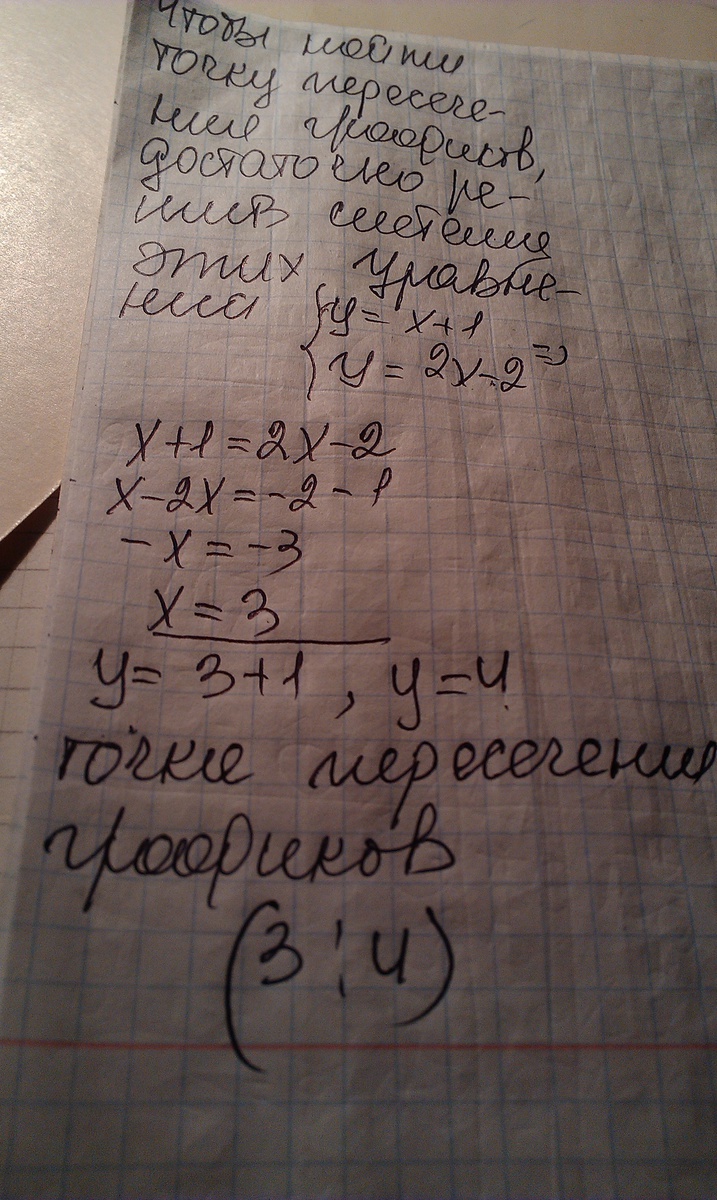 Чтобы найти
точку пересече-
ния графиков,
достаточно ре-
шив система
этих уравне-
ния { y = x+1
{ y = 2x-2 =>
x+1=2x-2
x-2x=-2-1
-x=-3
x=3
y= 3+1, y=4
точке пересечения
графиков
(3;4)